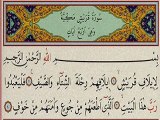 سورة قريش مكية
وهي أربع آيات
بِسْمِ اللَّهِ الرَّحْمَٰنِ الرَّحِيمِ
لِإِيلَافِ قُرَيْشٍ إِيلَافِهِمْ رِحْلَةَ الشِّتَاءِ وَالصَّيْفِ فَلْيَعْبُدُوا
رَبَّ هَٰذَا الْبَيْتِ الَّذِي أَطْعَمَهُمْ مِنْ جُوعٍ وَآمَنَهُمْ مِنْ خَوْفٍ